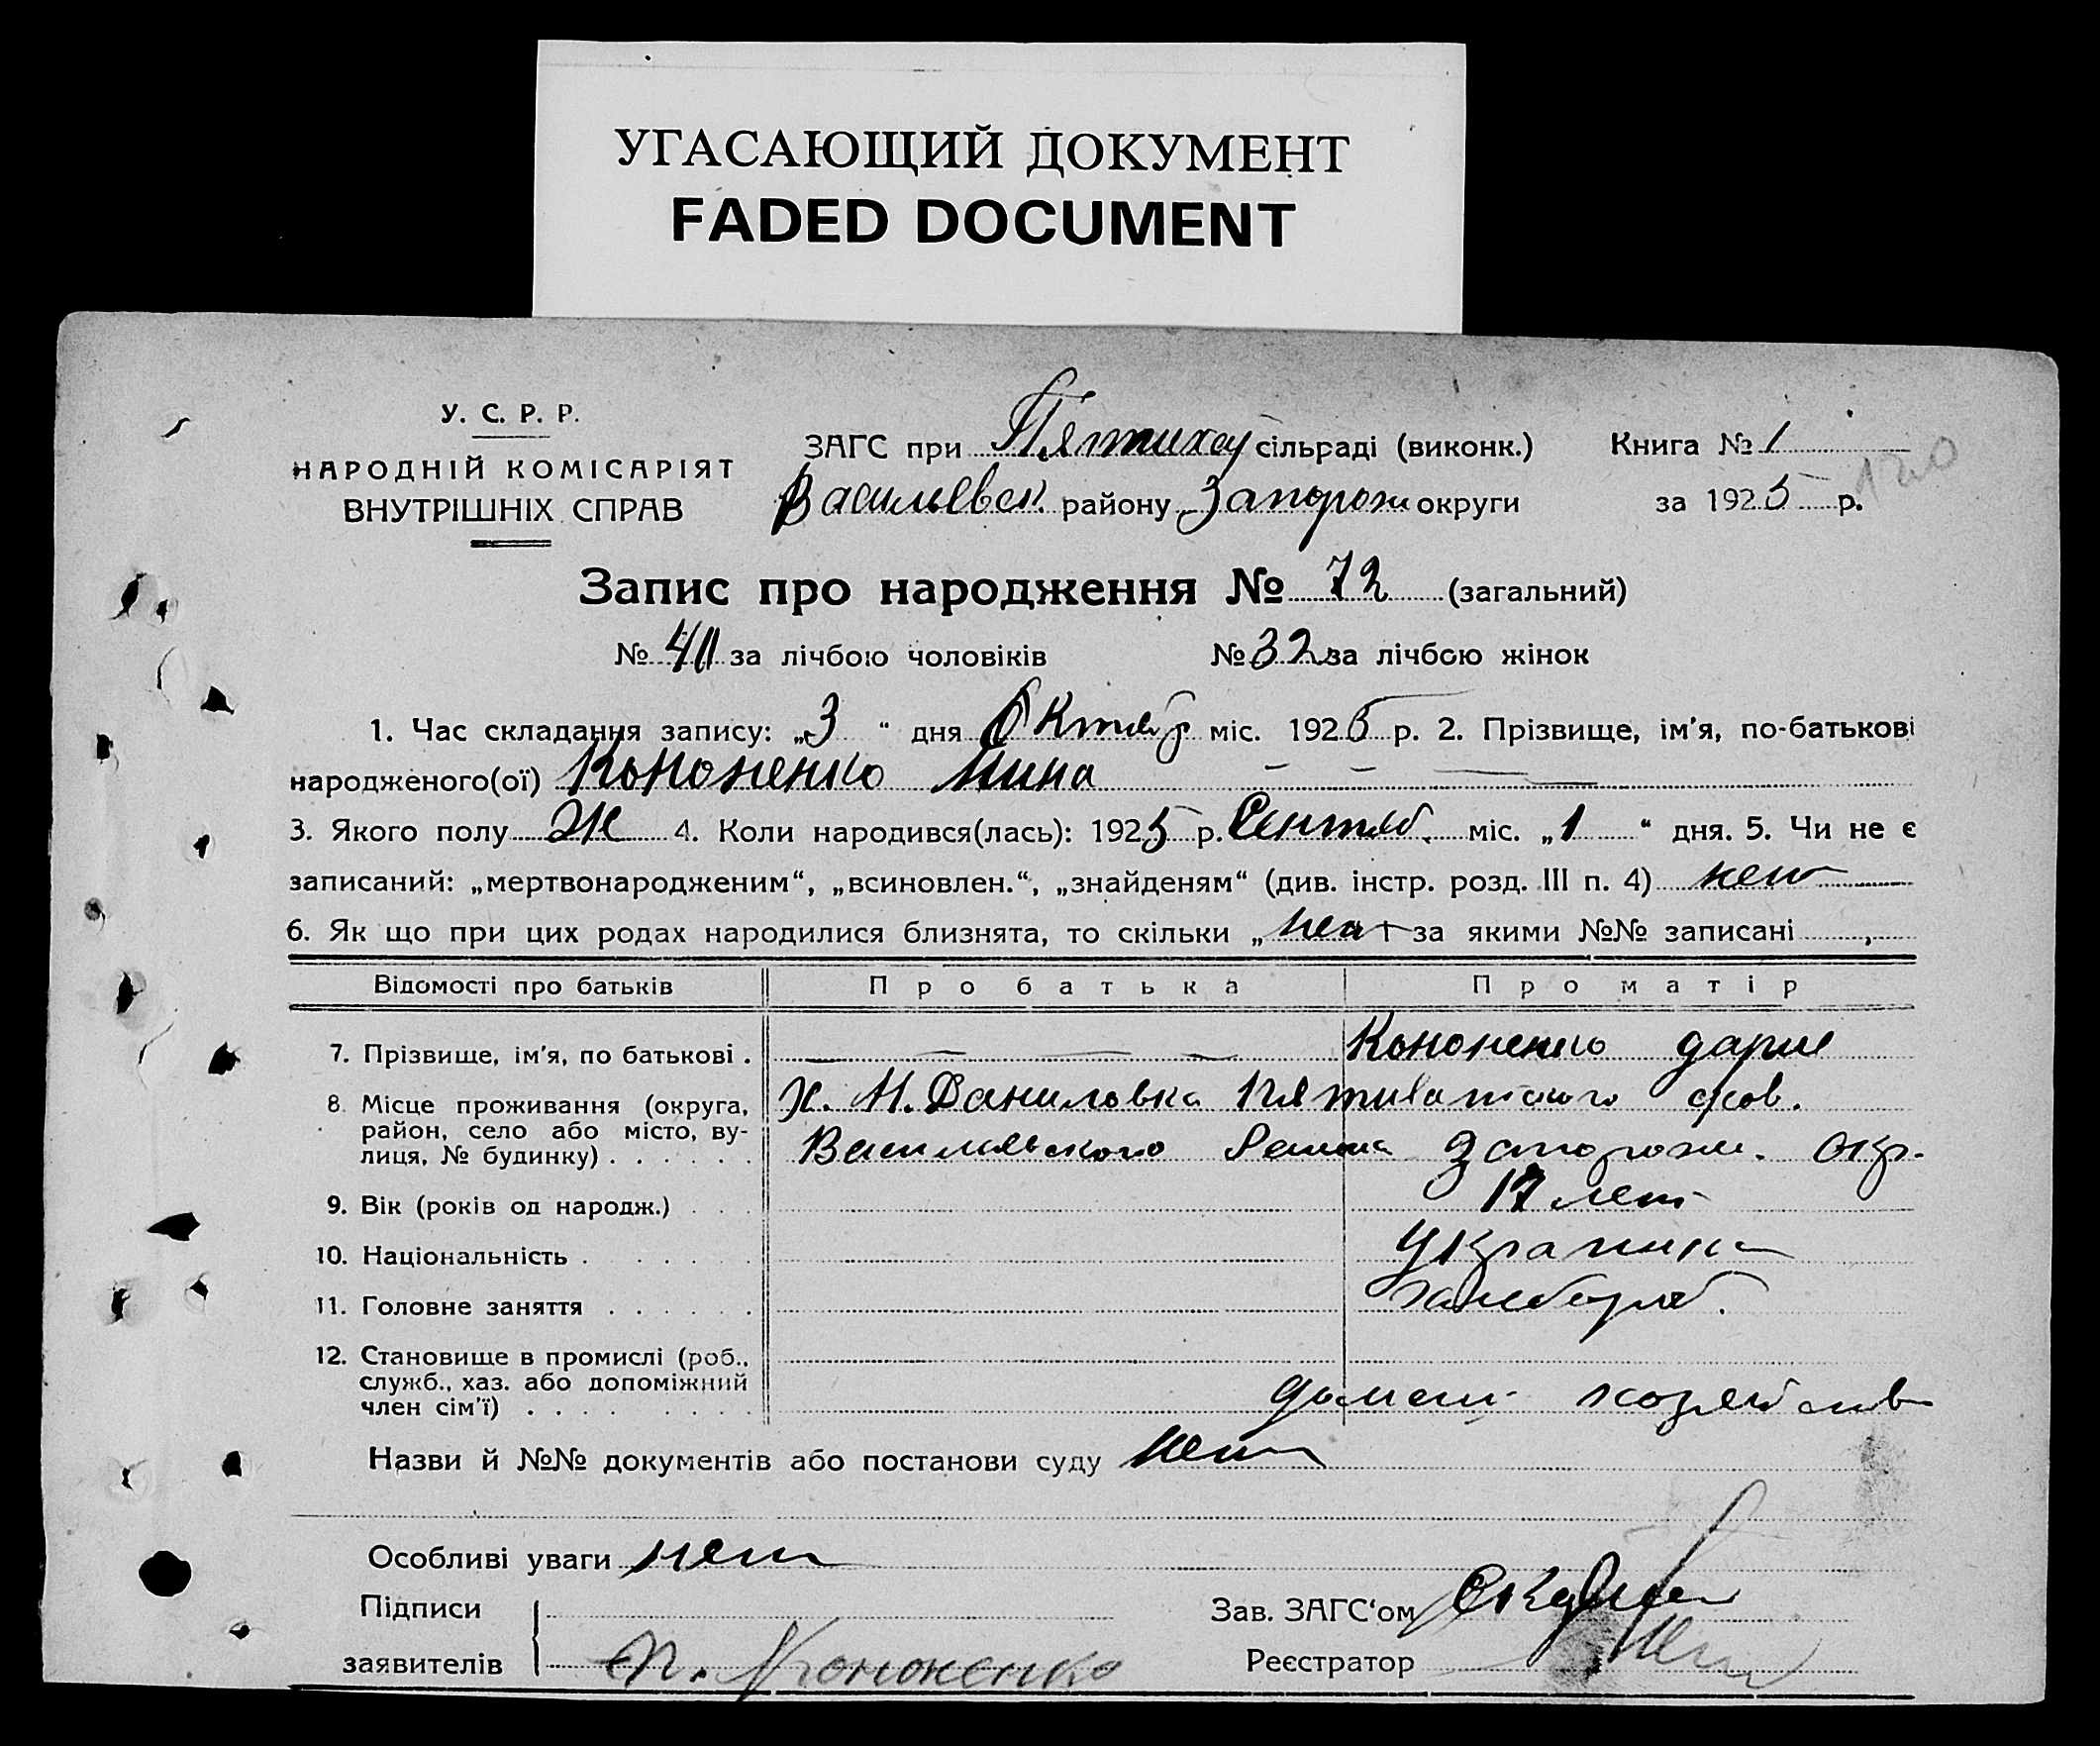 УГАСАЮЩИЙ ДОКУМЕНТ
FADED DOCUMENT
У. С. Р. Р.
НАРОДНІЙ КОМІСАРІЯТ
ВНУТРІШНІХ СПРАВ
ЗАГС при Пятихат сільраді (виконк.)
Васильевск. району Запорож округи
Книга № 1
120
за 1925 р.
Запис про народження № 72 (загальний)
№ 40 за лічбою чоловіків № 32 за лічбою жінок
1. Час складання запису: „3“ дня Октябр міс. 1925 р. 2. Прізвище, ім'я, по-батькові
народженого(ої) Кононенко Нина — — — —
3. Якого полу Ж 4. Коли народився(лась): 1925 р. Сентяб. міс. „1“ дня. 5. Чи не є
записаний: „мертвонародженим“, „всиновлен.“, „знайденям“ (див. інстр. розд. III п. 4) нет
6. Як що при цих родах народилися близнята, то скільки „нет за якими №№ записані
Відомості про батьків Про батька Про матір
7. Прізвище, ім'я, по батькові . — — — — Кононенко Дария
8. Місце проживання (округа, район, село або місто, вулиця, № будинку) х. Н. Даниловка Пятихатского
Васильевского Района Запорож. Окр.
9. Вік (років од народж.) 17 лет
10. Національність Украинка
11. Головне заняття хлебороб.
12. Становище в промислі (роб.,
служб., хаз. або допоміжний
член сім'ї) хозяйств
Назви й №№ документів або постанови суду нет
Особливі уваги нет
Підписи
заявителів П. Кононенко
Зав. ЗАГС'ом
Реєстратор